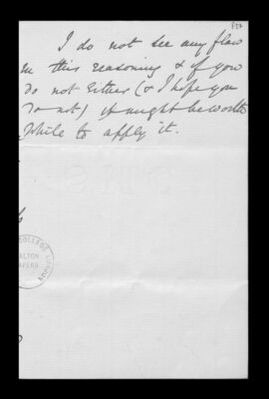 I do not see any flaw
in this reasoning & if you
do not either (& I hope you
do not) it might be worth
while to apply it.
COLLEGE
GALTON
PAPERS
LONDON